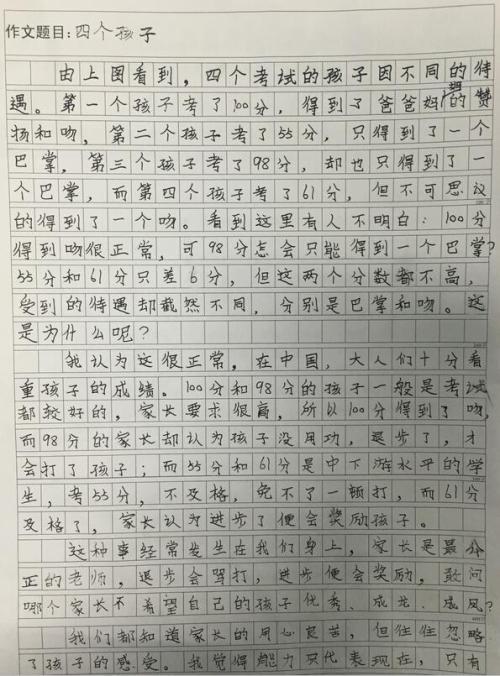 作文题目:四个孩子
由上图看到,四个考试的孩子因不同的待
遇。第一个孩子考了100分,得到了爸爸妈妈的赞
扬和吻,第二个孩子考了55分,只得到了一个
巴掌,第三个孩子考了98分,却也只得到了一
个巴掌,而第四个孩子考了61分,但不可思议
的得到了一个吻。看到这里有人不明白:100分
得到吻很正常,可98分怎会只能得到一个巴掌?
55分和61分只差6分,但这两个分数都不高,
受到的待遇却截然不同,分别是巴掌和吻。这
是为什么呢?
我认为这很正常,在中国,大人们十分看
重孩子的成绩。100分和98分的孩子一般是考试
都较好的,家长要求很高,所以100分得到了吻,
而98分的家长却认为孩子没用功,退步了,才
会打了孩子;而55分和61分是中下游水平的学
生,考55分,不及格,免不了一顿打,而61分
及格了,家长认为进步了便会奖励孩子。
这种事经常发生在我们身上,家长是最公
正的老师,退步会骂打,进步便会奖励,敢问
哪个家长不希望自己的孩子优秀、成龙、成凤?
我们都知道家长的用心良苦,但往往忽略
了孩子的感受。我觉得能力只代表现在,只有